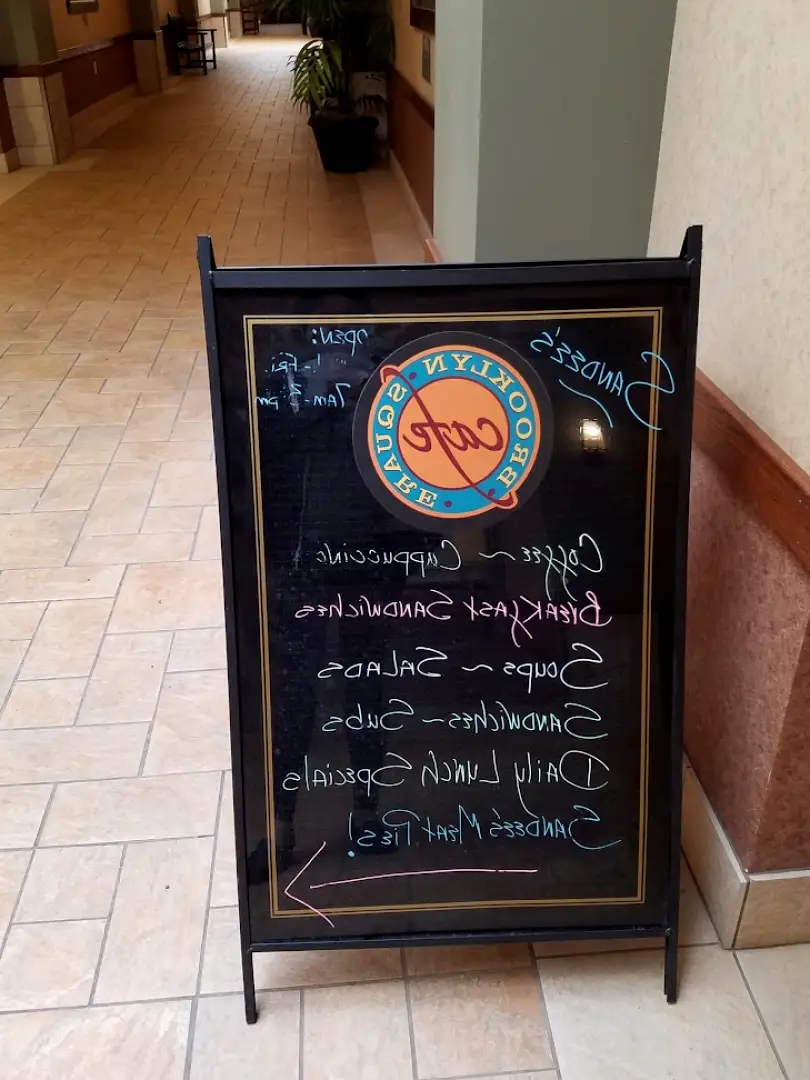 SANDEE'S
OPEN:
- FRI.
7AM-3pm
BROOKLYN
SQUARE
cafe
COFFEE ~ CAPPUCCINO
BREAKFAST SANDWICHES
SOUPS ~ SALADS
SANDWICHES ~ SUBS
DAILY LUNCH SPECIALS
SANDEE'S MEAT PIES!